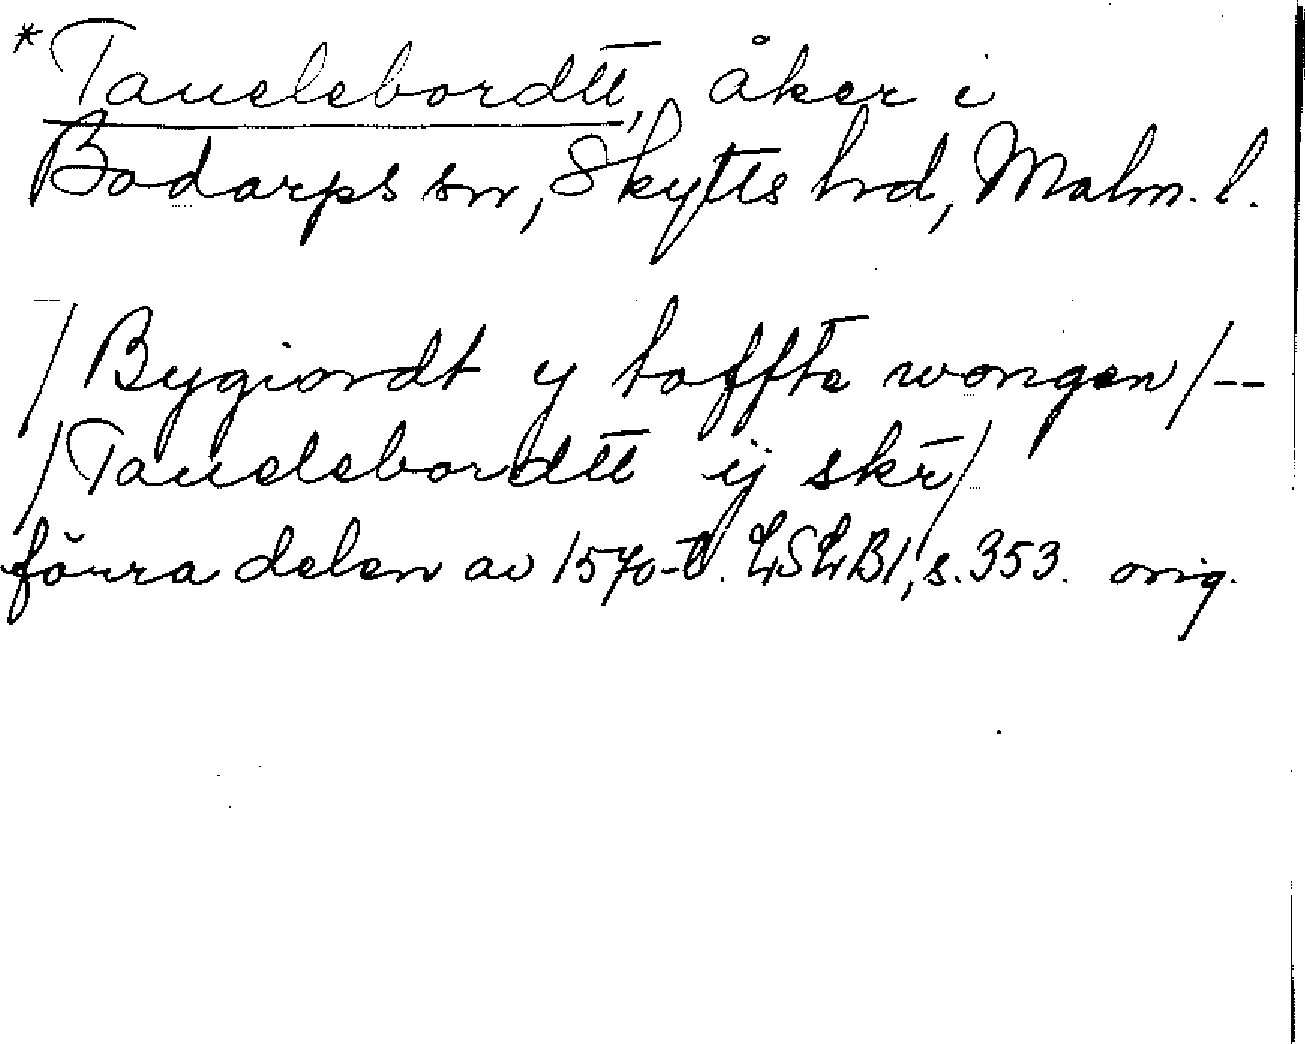 *Tauelebordtt, åker i
Bodarps sn, Skytts hrd, Malm. l.
/Bygiordt y toffte wongen/--
/Tauelebordtt ij skr/
förra delen av 1570-t. LSLB1, s. 353. orig.